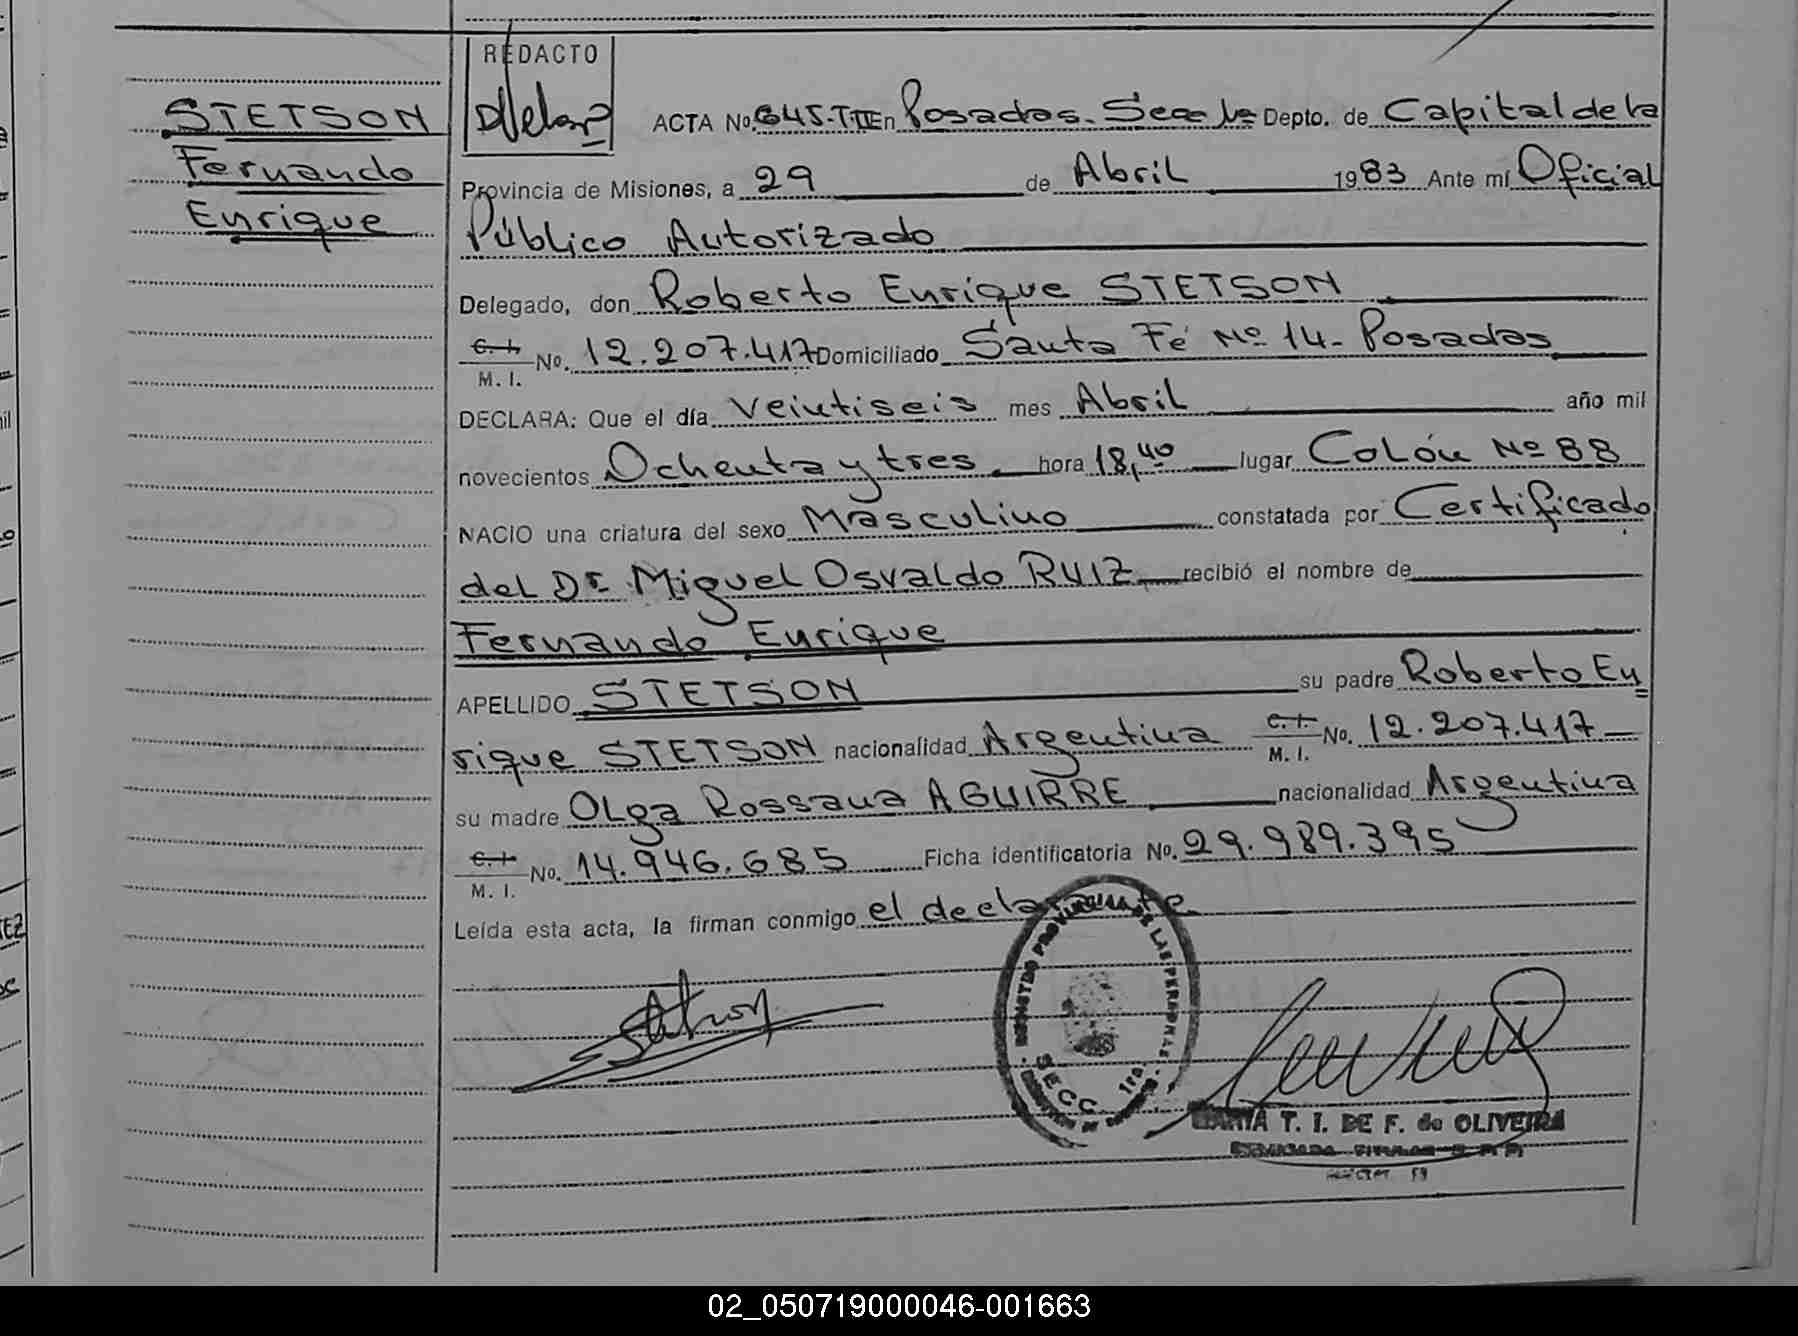 REDACTO
STETSON
Fernando
Enrique
ACTA No. 645-T II En Posadas. Secc 1a Depto. de Capital de la
Provincia de Misiones, a 29 de Abril 1983 Ante mí Oficial
Público Autorizado
Delegado, don Roberto Enrique STETSON
C. I. M. I. No. 12.207.417 Domiciliado Santa Fé Nº 14- Posadas
DECLARA: Que el día veintiseis mes Abril año mil
novecientos Ochenta y tres hora 18,40 lugar Colón Nº 88
NACIO una criatura del sexo Masculino constatada por Certificado
del Dr. Miguel Osvaldo RUIZ recibió el nombre de
Fernando Enrique
APELLIDO STETSON su padre Roberto En
rique STETSON nacionalidad Argentina C. I. M. I. No. 12.207.417
su madre Olga Rossana AGUIRRE nacionalidad Argentina
C. I. M. I. No. 14.946.685 Ficha identificatoria No. 29.989.395
Leída esta acta, la firman conmigo el declarante
REGISTRO PROVINCIAL DE LAS PERSONAS
SECC. 1ra.
MARTA T. I. DE F. de OLIVEIRA
02_050719000046-001663